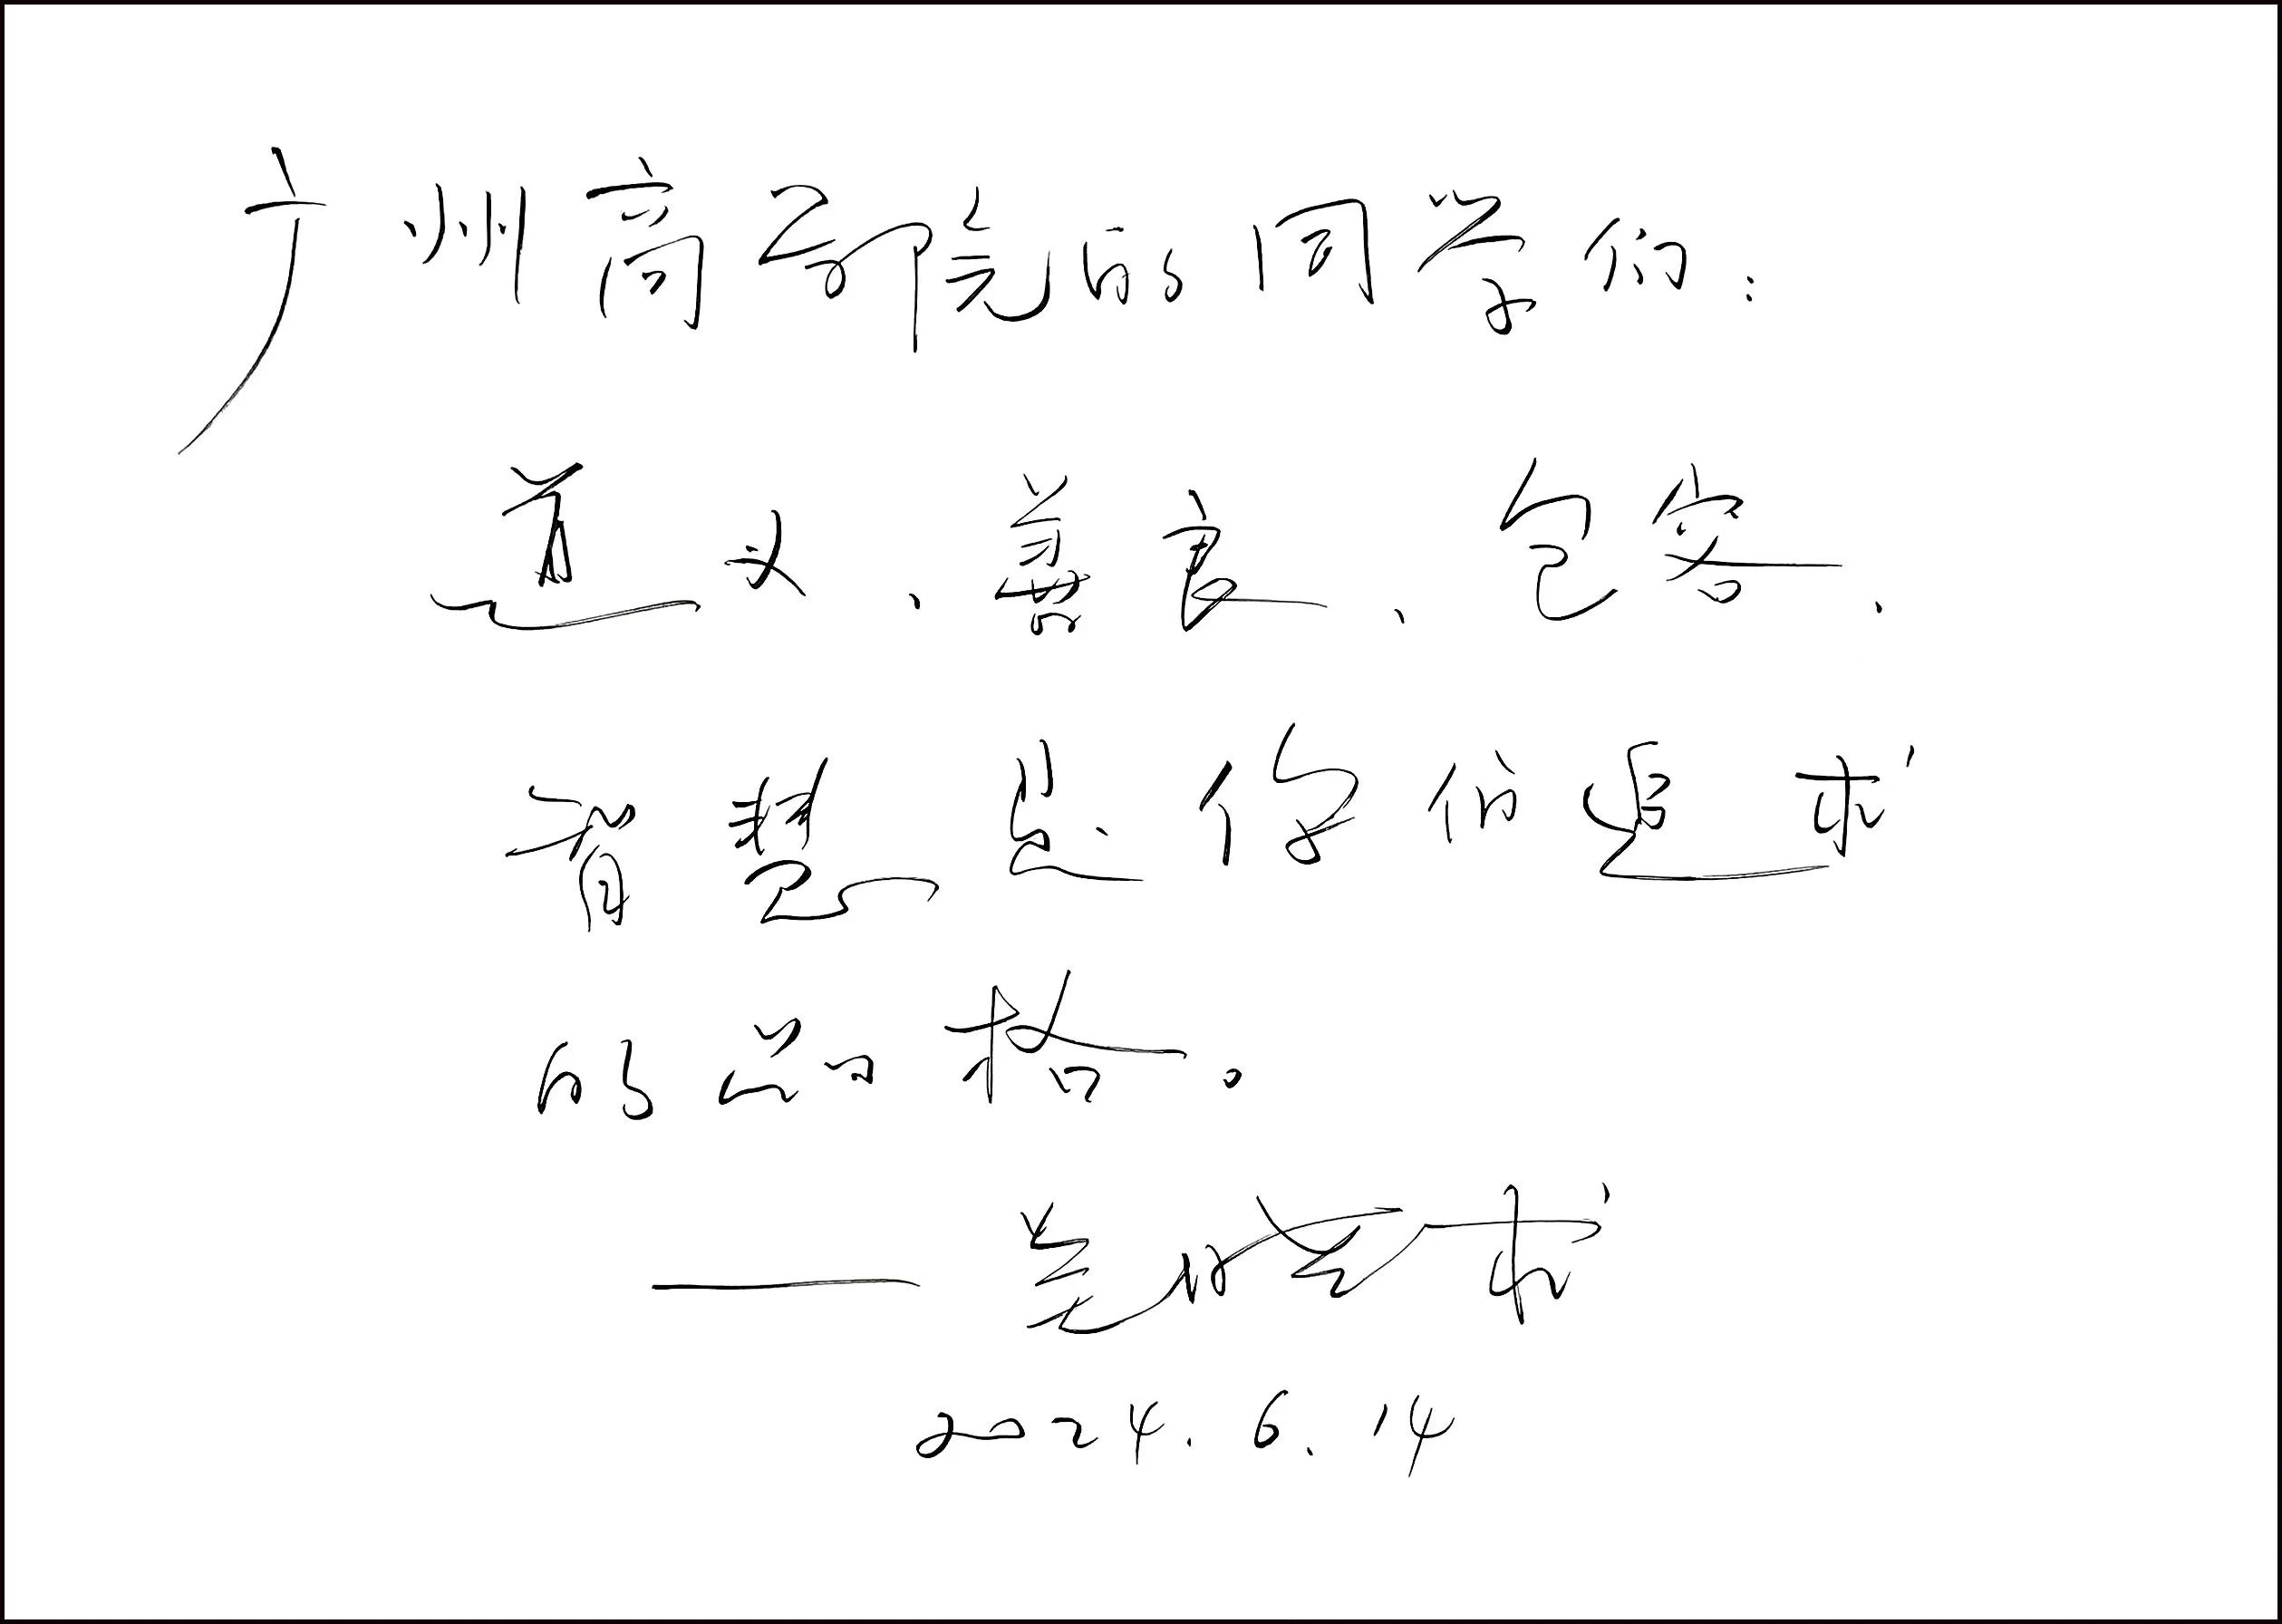 广州商学院的同学们：
道义、善良、包容、
智慧是你们追求
的品格。
——吴晓求
2024.6.14